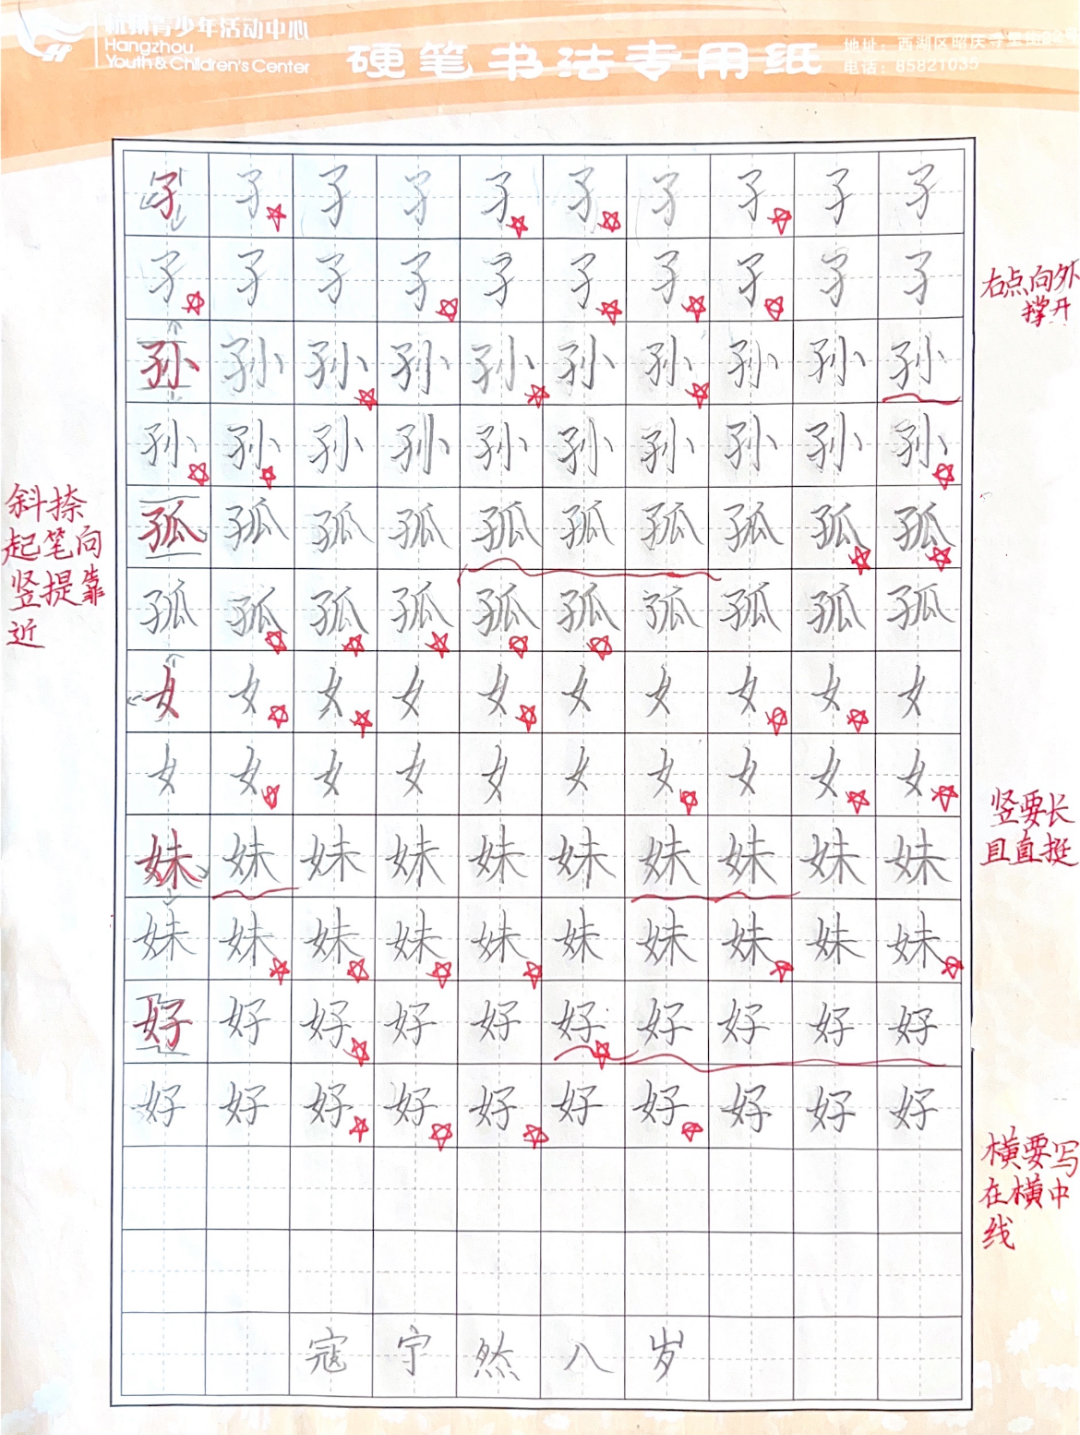 杭州青少年活动中心
Hangzhou
Youth & Children's Center
硬笔书法专用纸
地址：西湖区昭庆寺里街22号
电话：85821035
孑 孑 孑 孑 孑 孑 孑 孑 孑 孑
孑 孑 孑 孑 孑 孑 孑 孑 孑 孑
右点向外
撑开
孙 孙 孙 孙 孙 孙 孙 孙 孙 孙
孙 孙 孙 孙 孙 孙 孙 孙 孙 孙
斜捺
起笔向
竖提靠
近
孤 孤 孤 孤 孤 孤 孤 孤 孤 孤
孤 孤 孤 孤 孤 孤 孤 孤 孤 孤
女 女 女 女 女 女 女 女 女 女
女 女 女 女 女 女 女 女 女 女
竖要长
且直挺
妹 妹 妹 妹 妹 妹 妹 妹 妹 妹
妹 妹 妹 妹 妹 妹 妹 妹 妹 妹
好 好 好 好 好 好 好 好 好 好
好 好 好 好 好 好 好 好 好 好
横要写
在横中
线
寇 宁 然 八 岁